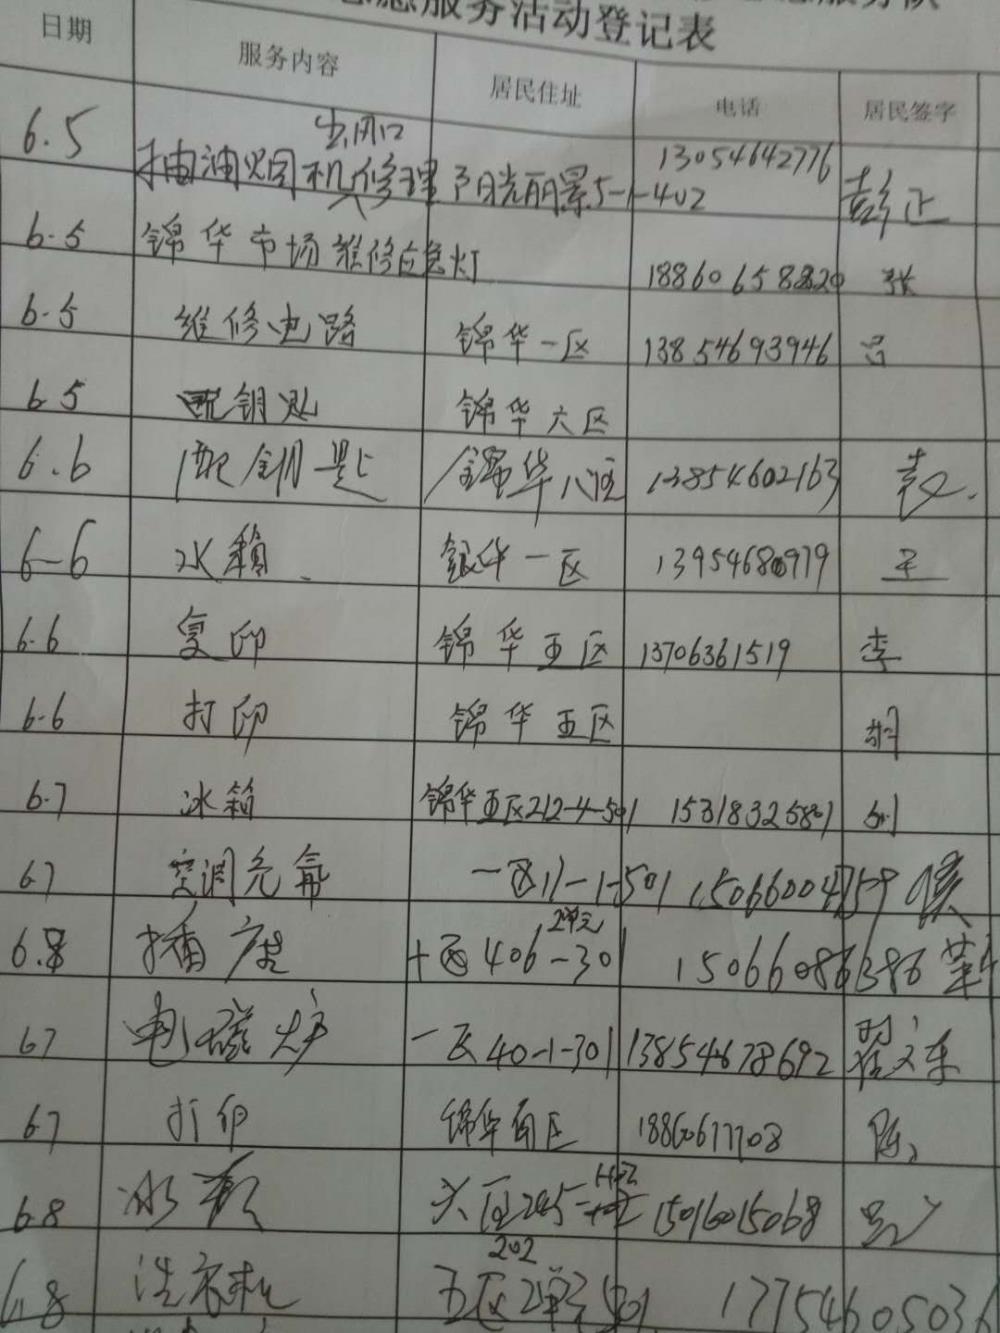 志愿服务活动登记表
日期 服务内容 居民住址 电话 居民签字
出风口
6.5 抽油烟机修理 阳光丽景5-1-402 13054642776 彭正
6.5 锦华市场维修应急灯 18860658820 张
6.5 维修电路 锦华一区 13854693946 吕
6.5 配钥匙 锦华六区
6.6 配钥匙 锦华八区 13854602163
6-6 水箱 锦华一区 13954680979 王
6.6 复印 锦华五区 13706361519 李
6.6 打印 锦华五区 胡
6.7 冰箱 锦华五区212-4-501 15318325801 刘
6.7 空调充氟 一区11-1-501 15066004759 侯
2单元
6.8 插座 十区406-301 15066086386
6.7 电磁炉 一区40-1-301 13854678692 翟文东
6.7 打印 锦华 区 18860677708 陈
6.8 冰 六区245 15016015068
202
6.8 洗衣机 五区2单元501 17754605036